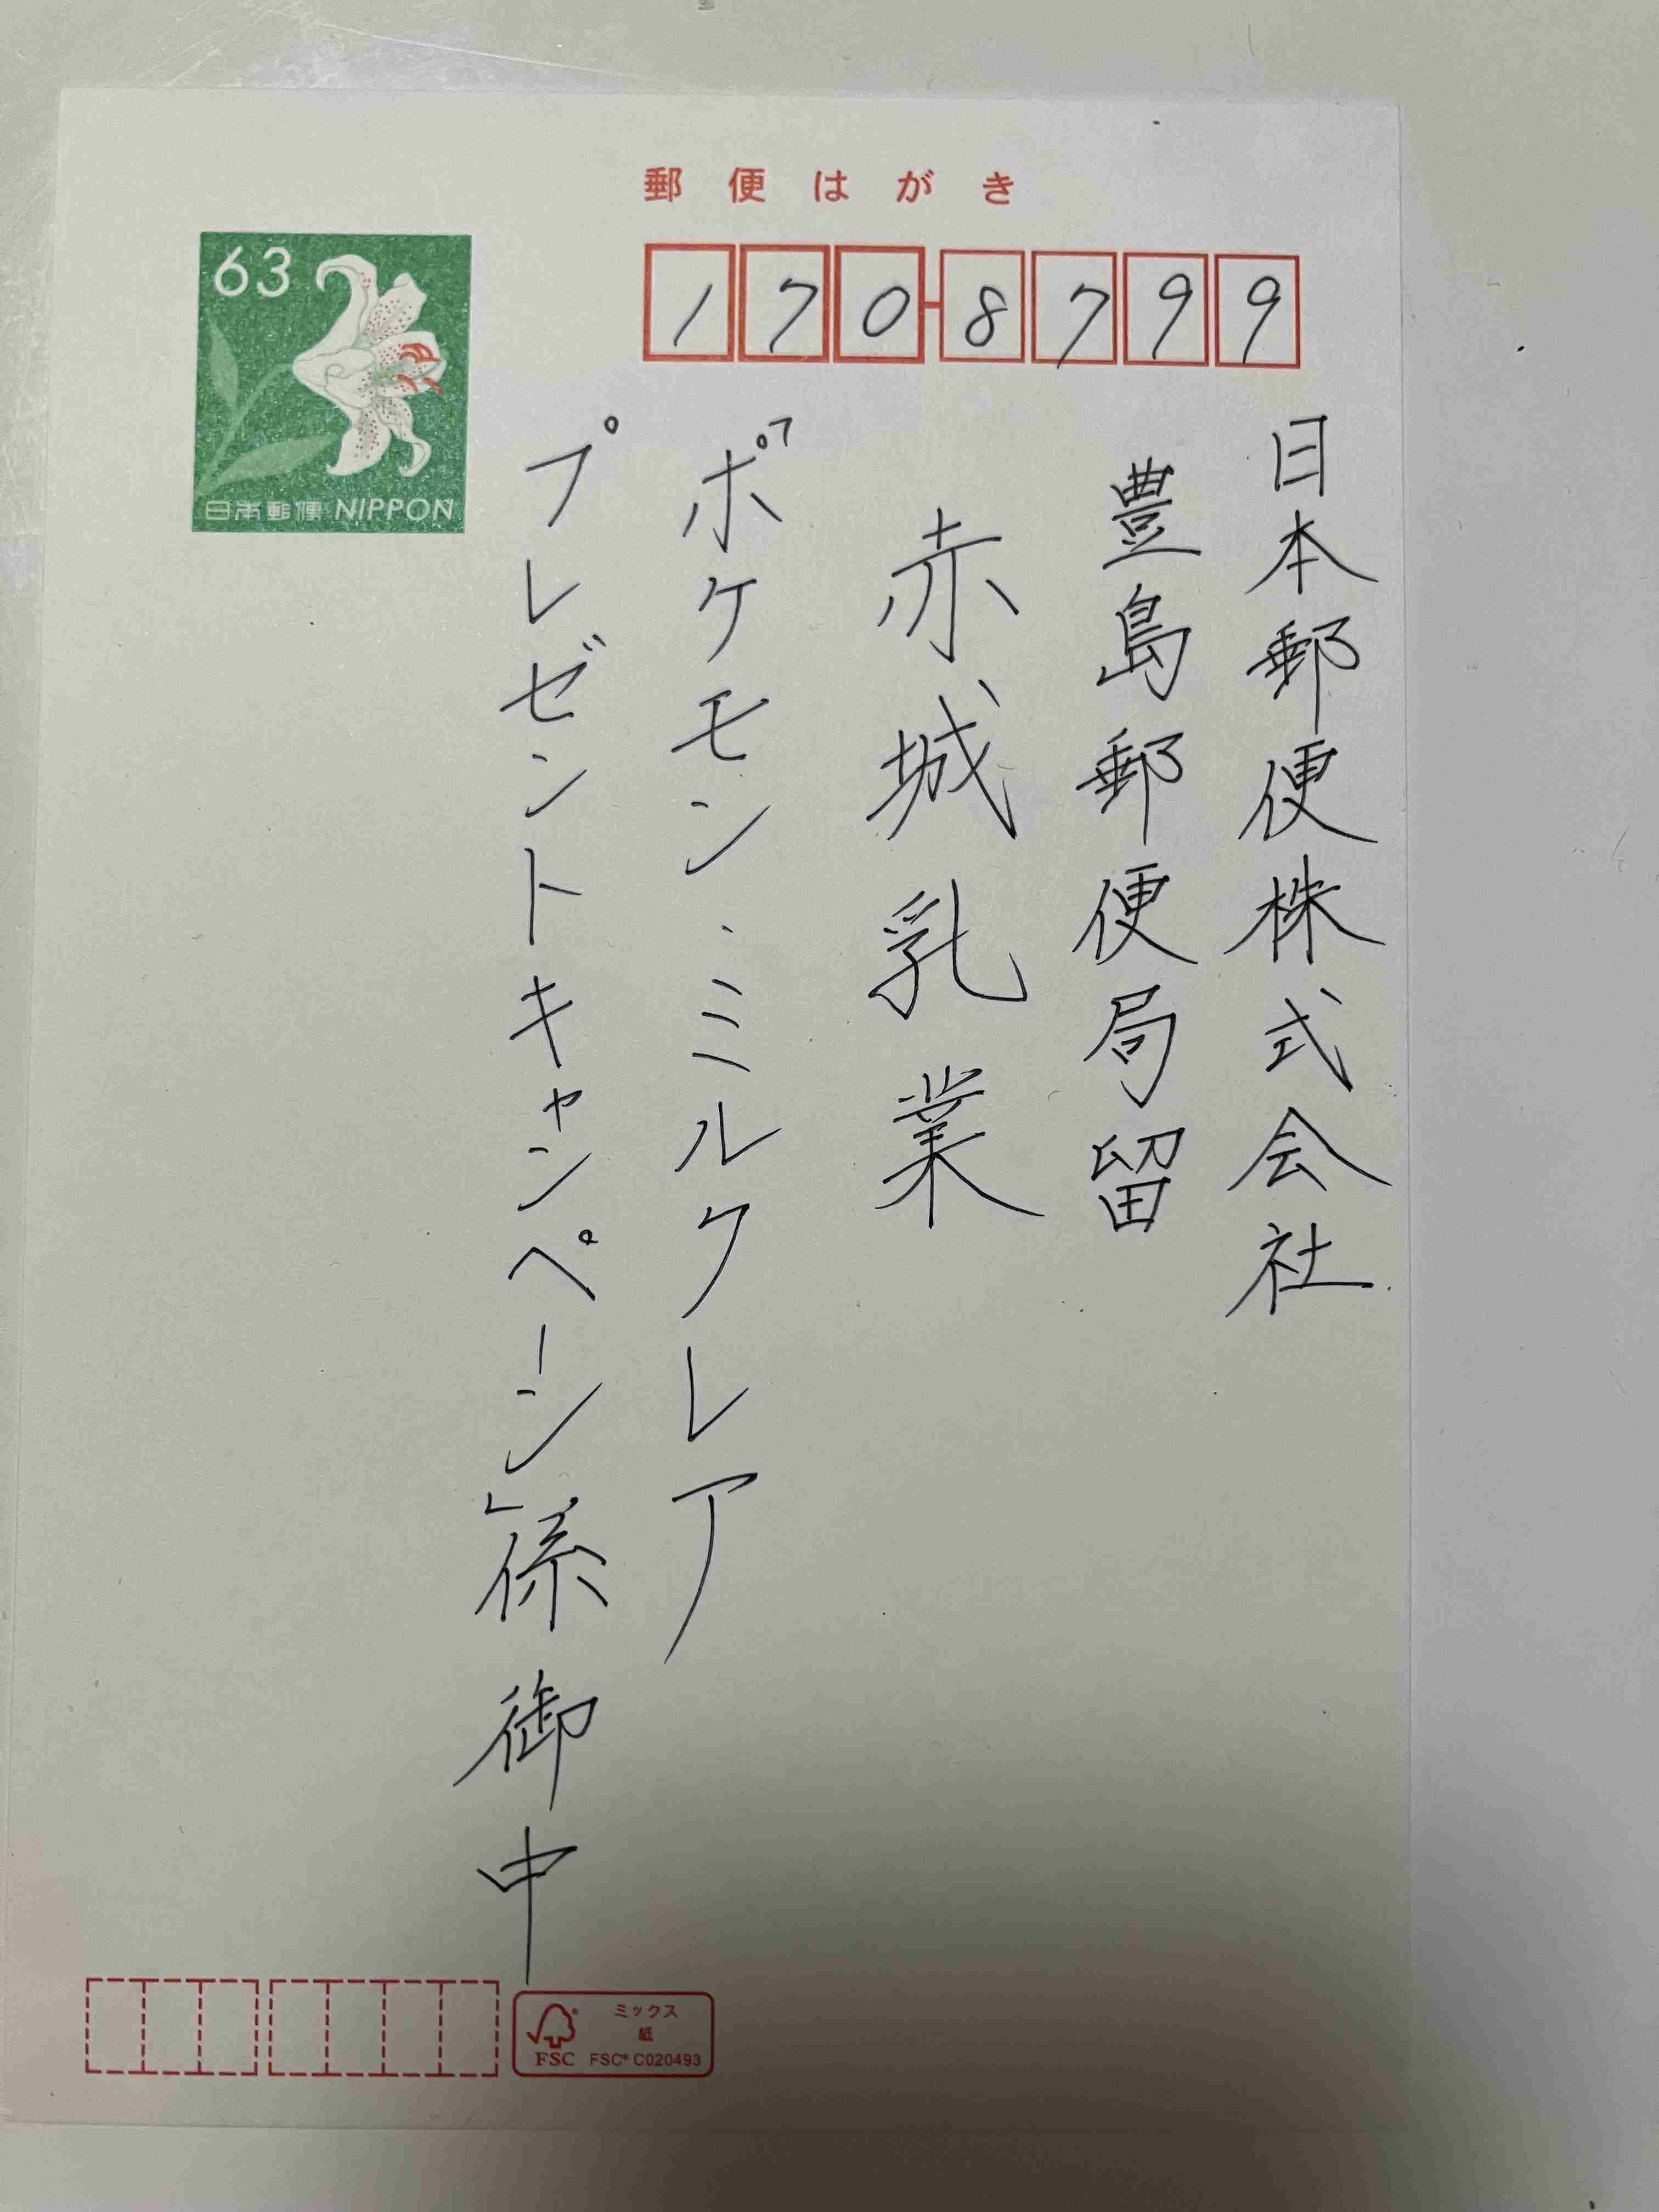 郵便はがき
63
日本郵便 NIPPON
170-8799
日本郵便株式会社
豊島郵便局留
赤城乳業
「ポケモン・ミルクレア
プレゼントキャンペーン」係御中
ミックス
紙
FSC
FSC® C020493